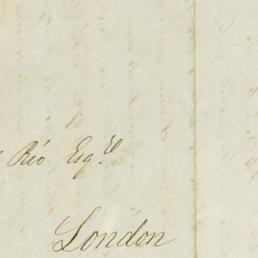 Rio Esqre
London